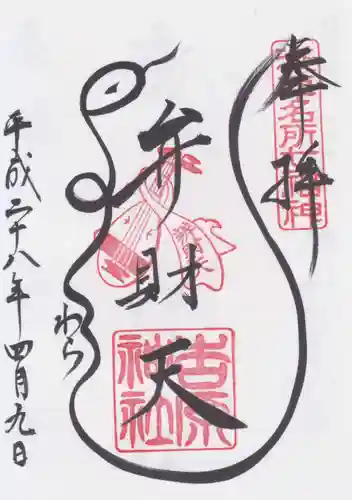 奉拝
弁財天
吉原
神社
わら
平成二十八年四月九日